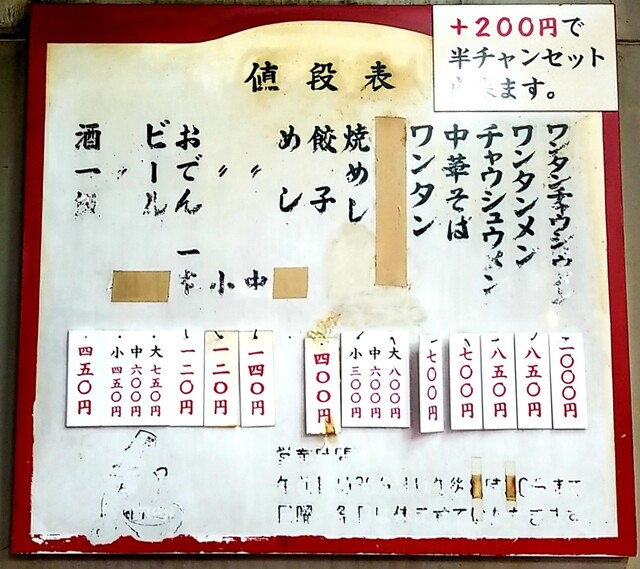 +200円で
半チャンセット
ます。
値段表
ワンタンチャウシュウメン
ワンタンメン
チャウシュウメン
中華そば
ワンタン
焼めし
餃子
めし
〃 中
〃 小
おでん 一
ビール
〃
酒一級
一〇〇〇円
八五〇円
八五〇円
七〇〇円
七〇〇円
大八〇〇円
中六〇〇円
小三〇〇円
四〇〇円
一四〇円
一二〇円
一二〇円
大七五〇円
中六〇〇円
小四五〇円
四五〇円